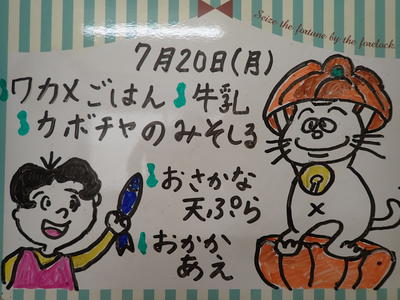 Seize the fortune by the forelock.
7月20日(月)
ワカメごはん 牛乳
カボチャのみそしる
おさかな
天ぷら
おかか
あえ